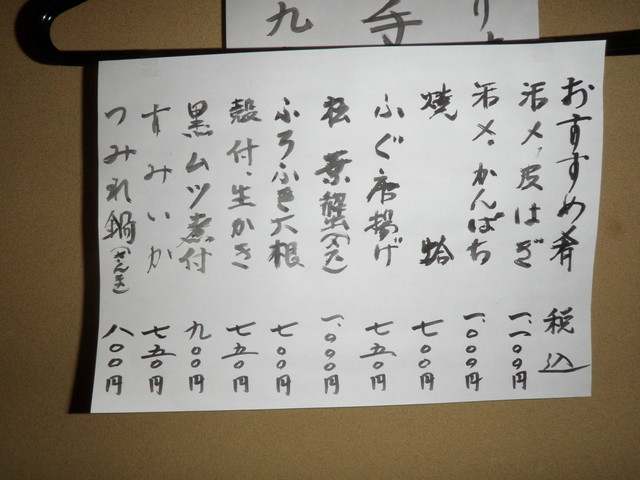 おすすめ肴 税込
活〆皮はぎ 一、一〇〇円
活〆かんぱち 一、〇〇〇円
焼蛤 七〇〇円
ふぐ唐揚げ 七五〇円
松葉蟹(メス) 一、〇〇〇円
ふろふき大根 七〇〇円
殻付、生かき 七五〇円
黒ムツ煮付 九〇〇円
すみいか 七五〇円
つみれ鍋(さんま) 八〇〇円
九